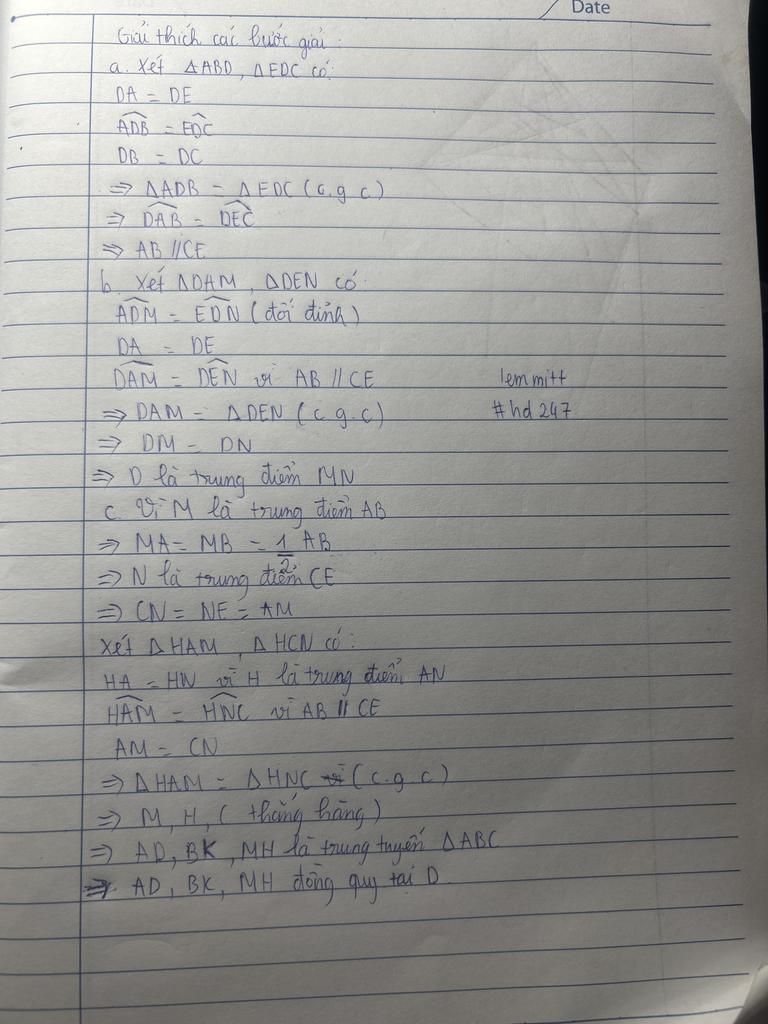 Date
Giải thích các bước giải:
a. Xét ΔABD, ΔEDC có:
DA = DE
\widehat{ADB} = \widehat{EDC}
DB = DC
=> ΔADB = ΔEDC (c.g c)
=> \widehat{DAB} = \widehat{DEC}
=> AB // CE
b. Xét ΔDAM, ΔDEN có:
\widehat{ADM} = \widehat{EDN} (đối đỉnh)
DA = DE
\widehat{DAM} = \widehat{DEN} vì AB // CE
lemmitt
=> DAM = ΔDEN (c g.c)
#hd247
=> DM = DN
=> D là trung điểm MN
c. Vì M là trung điểm AB
=> MA = MB = 1/2 AB
=> N là trung điểm CE
=> CN = NE = AM
Xét ΔHAM, ΔHCN có:
HA = HN vì H là trung điểm AN
\widehat{HAM} = \widehat{HNC} vì AB // CE
AM = CN
=> ΔHAM = ΔHNC (c.g c)
=> M, H, ( thẳng hàng)
=> AD, BK, MH là trung tuyến ΔABC
=> AD, BK, MH đồng quy tại D